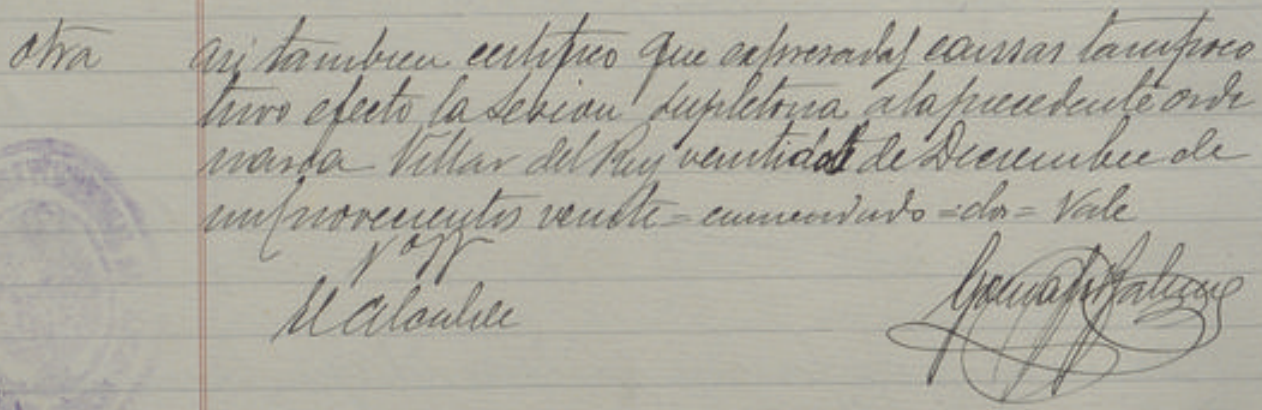 otra asi tambien certifico que espresadas causas tampoco
tuvo efecto la sesion supletoria a la precedente ordi
naria Villar del Rey ventidos de Diciembre de
mil novecientos veinte = enmendado = dos = Vale
Vº Bº
El Alcalde